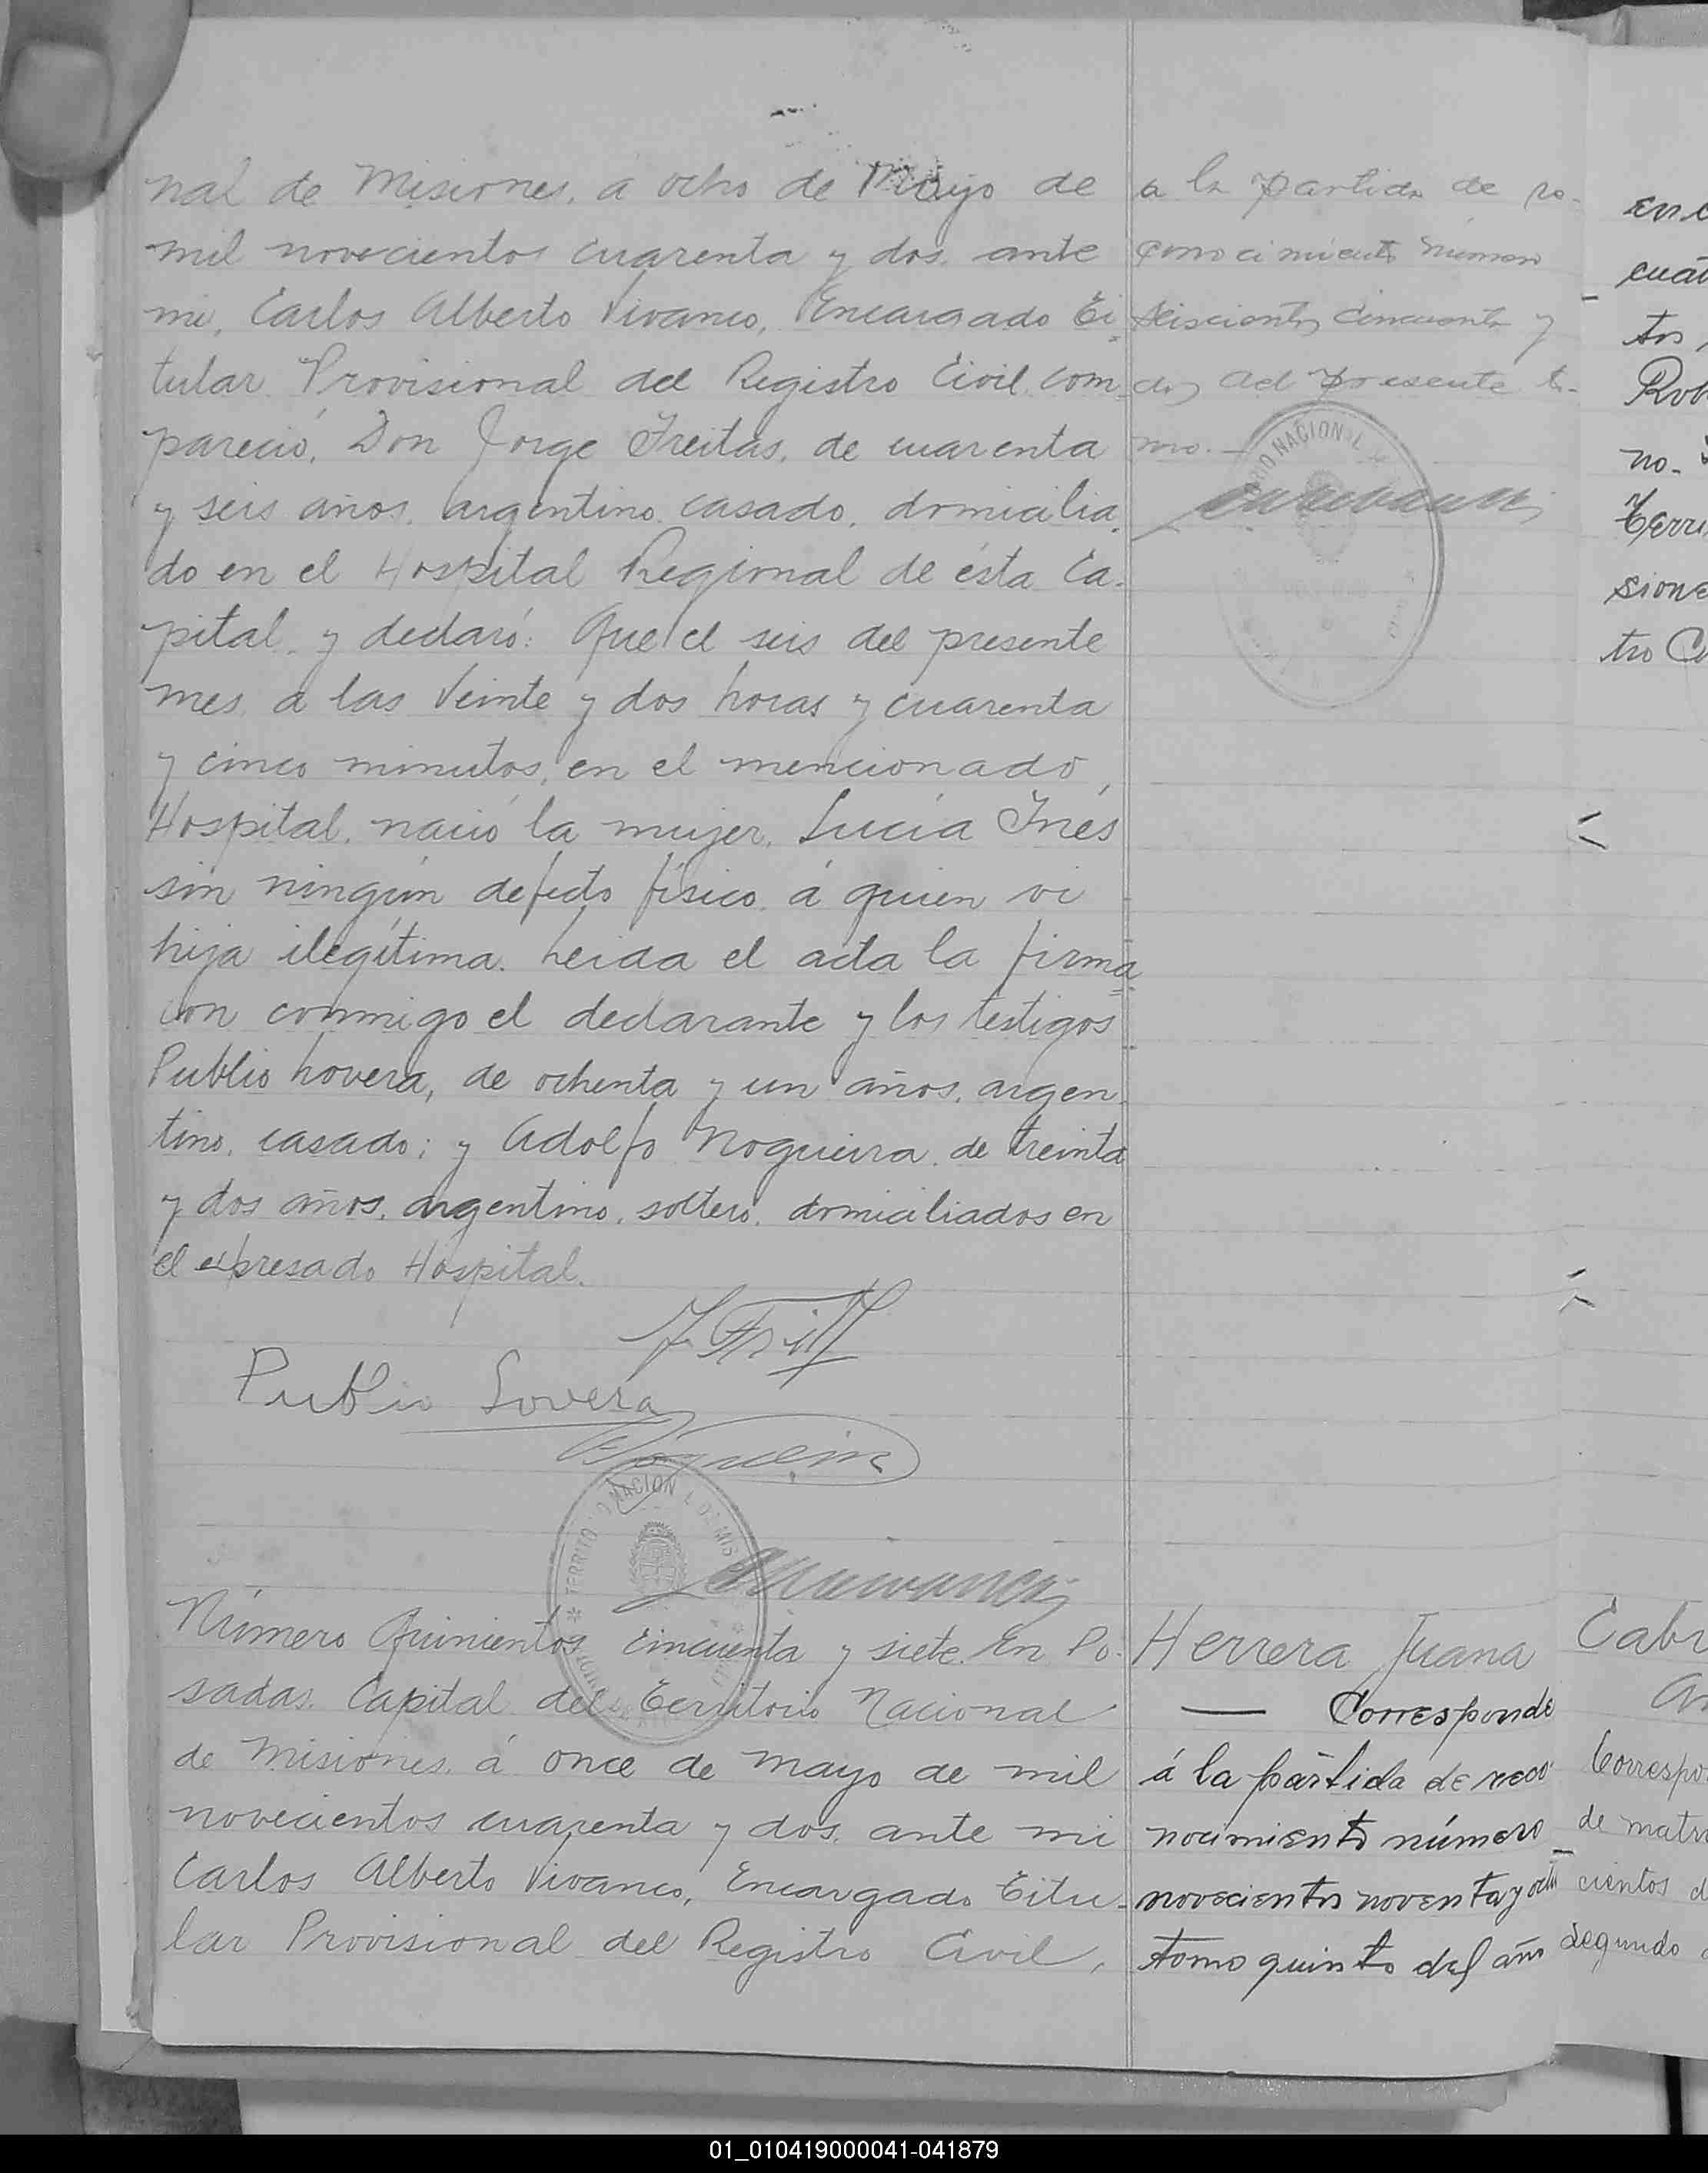 nal de Misiones, á ocho de Mayo de
mil novecientos cuarenta y dos, ante
mi, Carlos Alberto Vivanco, Encargado Ti
tular Provisional del Registro Civil, com
pareció, Don Jorge Freitas, de cuarenta
y seis años, argentino, casado, domicilia
do en el Hospital Regional de ésta Ca-
pital, y declaró: Que el seis del presente
mes, a las veinte y dos horas y cuarenta
y cinco minutos, en el mencionado
Hospital, nació la mujer, Lucía Inés
sin ningún defecto físico, á quien vi
hija ilegítima. Leida el acta la firma
ron conmigo el declarante y los testigos
Publio Lovera, de ochenta y un años, argen
tino, casado; y Adolfo Nogueira, de treinta
y dos años, argentino, soltero, domiciliados en
el expresado Hospital.
Publio Lovera
Nogueira
TERRITORIO NACIONAL DE MIS
Número Quinientos cincuenta y siete. En Po-
sadas, Capital del Territorio Nacional
de Misiones, á once de mayo de mil
novecientos cuarenta y dos, ante mi
Carlos Alberto Vivanco, Encargado Titu-
lar Provisional del Registro Civil,
a la partida de re-
conocimiento número
seiscientos cincuenta y
dos del presente to-
mo.-
NACIONAL
Herrera Juana
— Corresponde
á la partida de reco
nocimiento número
novecientos noventa y ocho
tomo quinto del año
Rob
no.
sione
tro Ci
Cabr
Correspo
de matri
cientos d
segundo
01_010419000041-041879